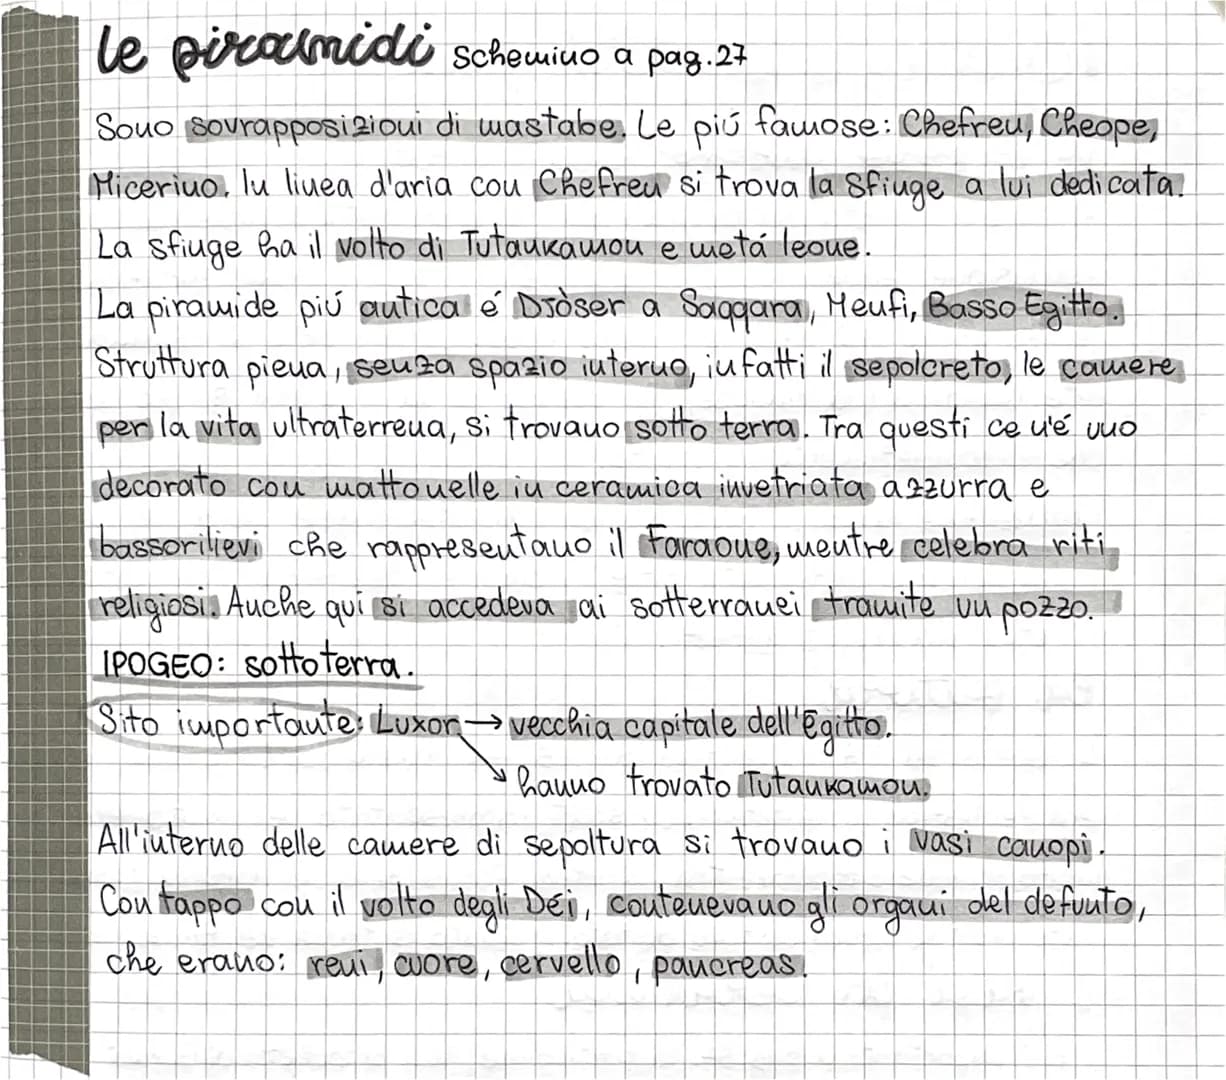 le piramidi schemino a pag.27
Sono sovrapposizioni di mastabe. Le piú famose: Chefren, Cheope,
Micerino. In linea d'aria con Chefren si trova la sfinge a lui dedicata.
La sfinge ha il volto di Tutankamon e metá leone.
La piramide piú antica é Djòser a Saqqara, Menfi, Basso Egitto.
Struttura piena, senza spazio interno, infatti il sepolcreto, le camere
per la vita ultraterrena, si trovano sotto terra. Tra questi ce n'é uno
decorato con mattonelle in ceramica invetriata azzurra e
bassorilievi che rappresentano il Faraone, mentre celebra riti
religiosi. Anche qui si accedeva ai sotterranei tramite un pozzo.
IPOGEO: sottoterra.
Sito importante: Luxor → vecchia capitale dell'Egitto.
↘ hanno trovato Tutankamon.
All'interno delle camere di sepoltura si trovano i vasi canopi.
Con tappo con il volto degli Dei, contenevano gli organi del defunto,
che erano: reni, cuore, cervello, pancreas.